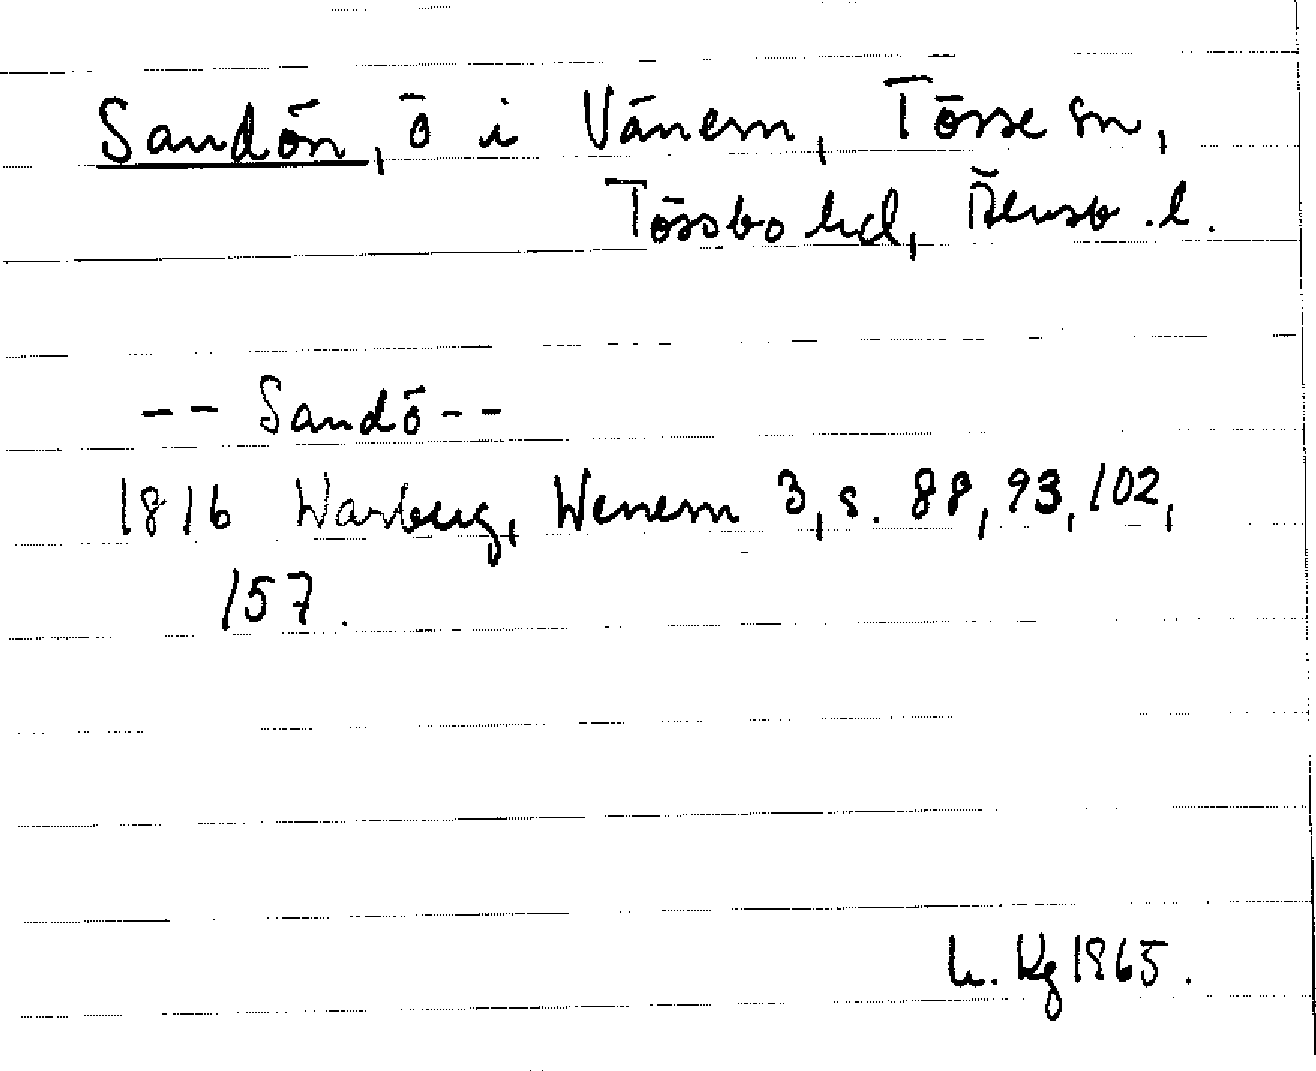 Sandön, ö i Vänern, Tösse sn,
Tössbo hd, Älvsb. l.
-- Sandö --
1816 Warberg, Wenern 3, s. 88, 93, 102,
157.
L. Kg 1965.